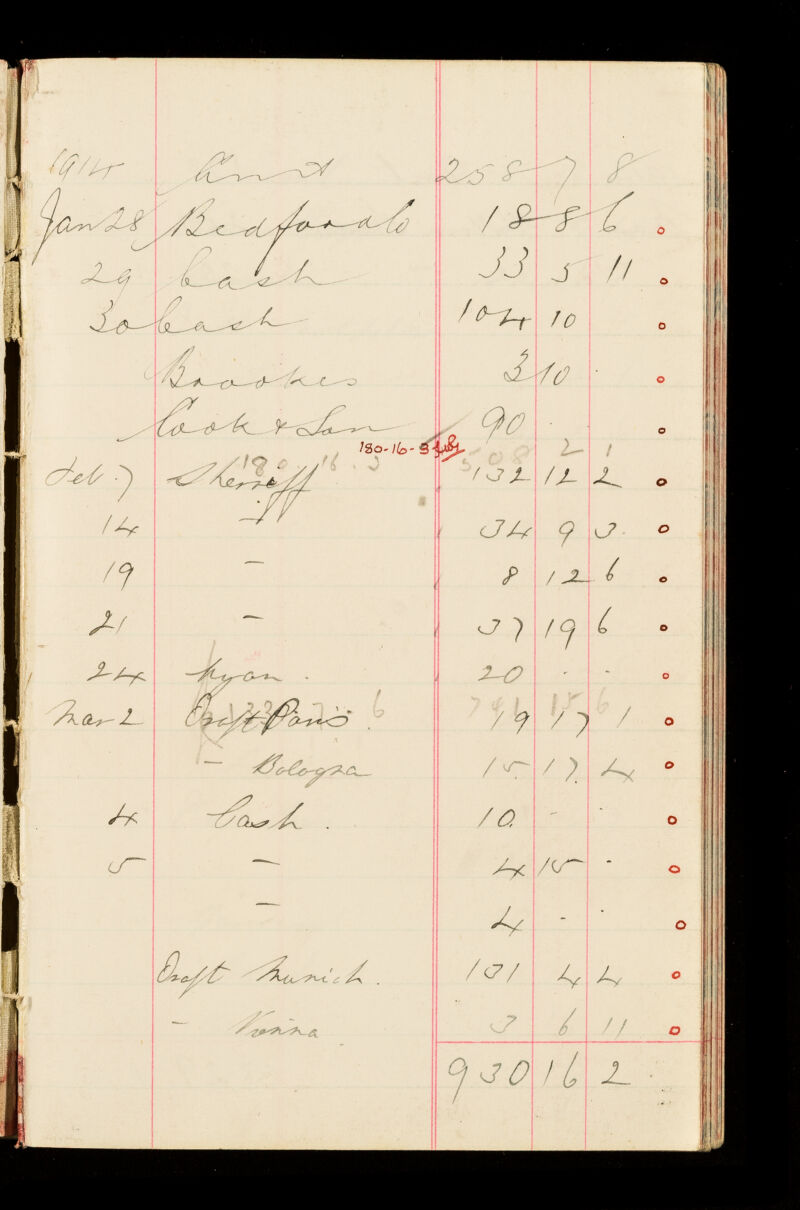 1914 Amt 258 7 8
Jan 28 Bedford Co 18 8 6
29 Cash 33 5 11
30 Cash 104 10
Brookes 3 10 ·
Cook & Son 90 · ·
180-16-3
180 16.3 508 2 1
Feb. 7 Sherreff 132 12 2
14 - 34 9 3.
19 - 8 12 6
21 - 37 19 6
24 Myan. 20 · ·
741 15 6
Mar 2 Draft Paris 19 17 1
- Bologna 15. 17. 4
4 Cash. 10. - ·
5 - 4 15 -
- 4 - ·
Draft Munich. 131 4 4
- Vienna 3 6 11
930 16 2